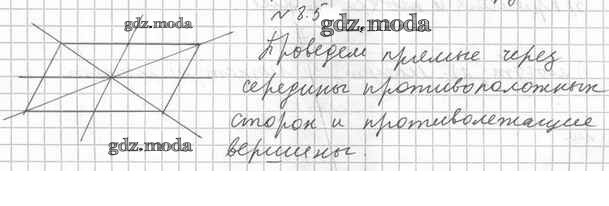 № 8.5
gdz.moda
gdz.moda
Проведем прямые через
середины противоположных
сторон и противолежащие
вершины.
gdz.moda